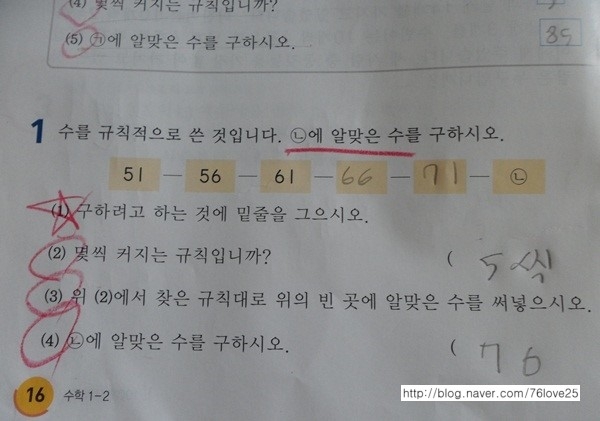 (4) 몇씩 커지는 규칙입니까?
(5) ㉮에 알맞은 수를 구하시오. 85
1 수를 규칙적으로 쓴 것입니다. ㉡에 알맞은 수를 구하시오.
51 — 56 — 61 — 66 — 71 — ㉡
(1) 구하려고 하는 것에 밑줄을 그으시오.
(2) 몇씩 커지는 규칙입니까? ( 5씩
(3) 위 (2)에서 찾은 규칙대로 위의 빈 곳에 알맞은 수를 써넣으시오.
(4) ㉡에 알맞은 수를 구하시오. ( 76
16 수학 1-2
http://blog.naver.com/76love25